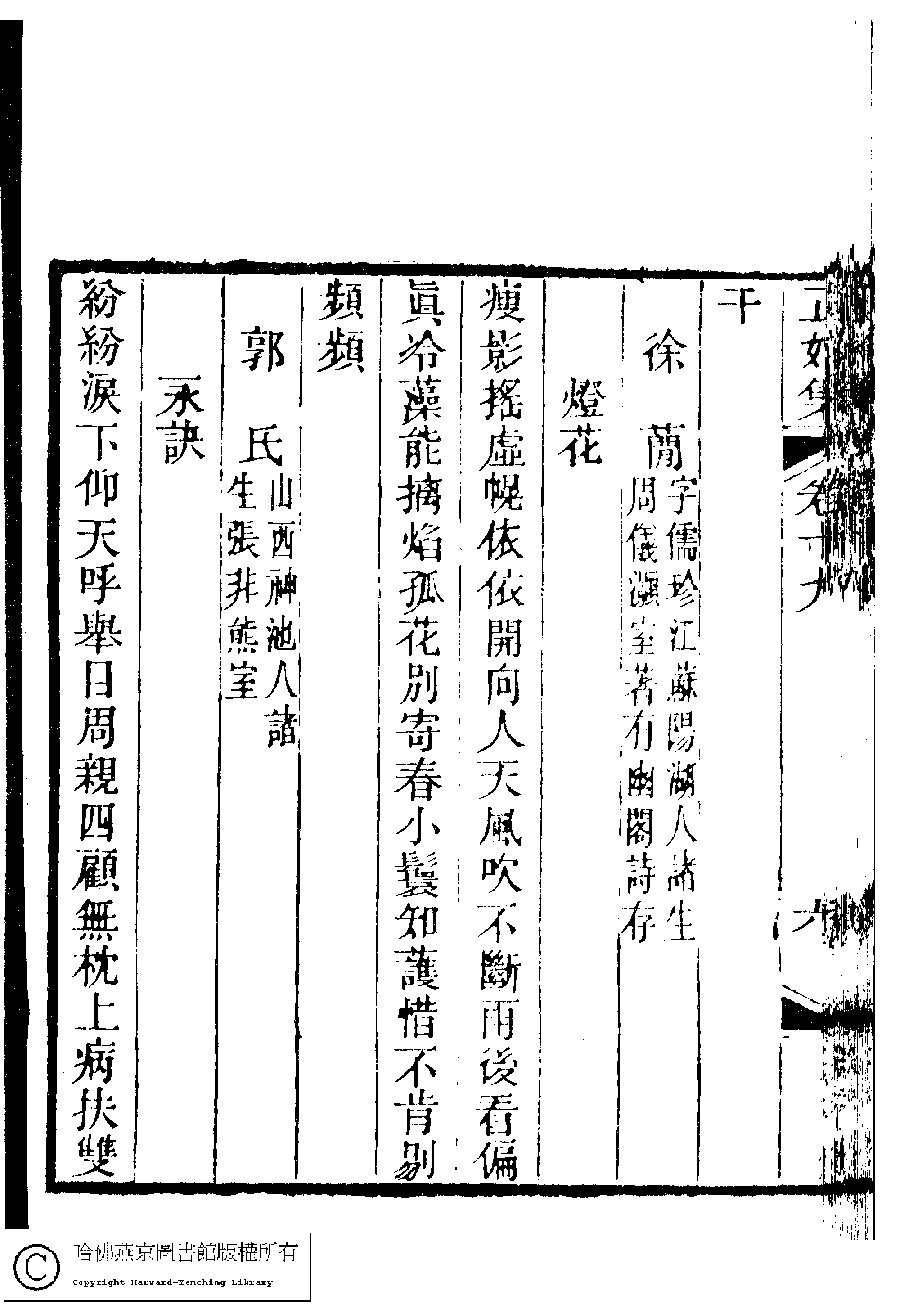 正始集
卷十九
六
干
徐蕳
字儒珍江蘇陽湖人諸生
周儀灝室著有幽閣詩存
燈花
瘦影搖虛幌依依開向人天風吹不斷雨後看偏
眞冷藻能摛焰孤花別寄春小鬟知護惜不肯剔
頻頻
郭氏
山西神池人諸
生張非熊室
永訣
紛紛淚下仰天呼舉目周親四顧無枕上病扶雙
哈佛燕京圖書館版權所有
Copyright Harvard-Yenching Library